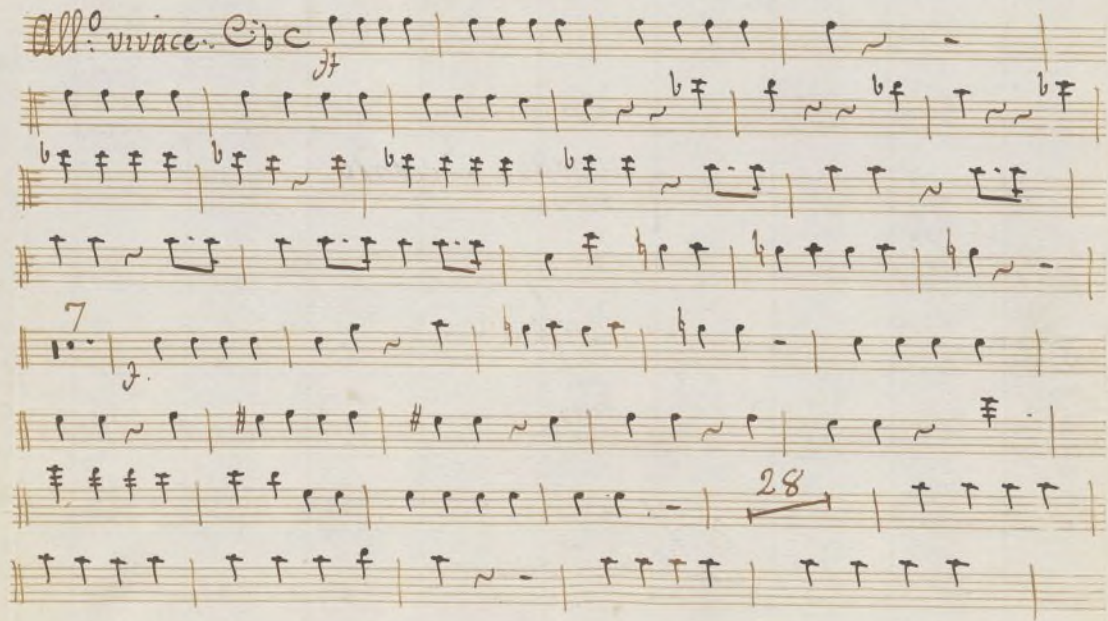 All.º vivace.
ff
7
f.
28